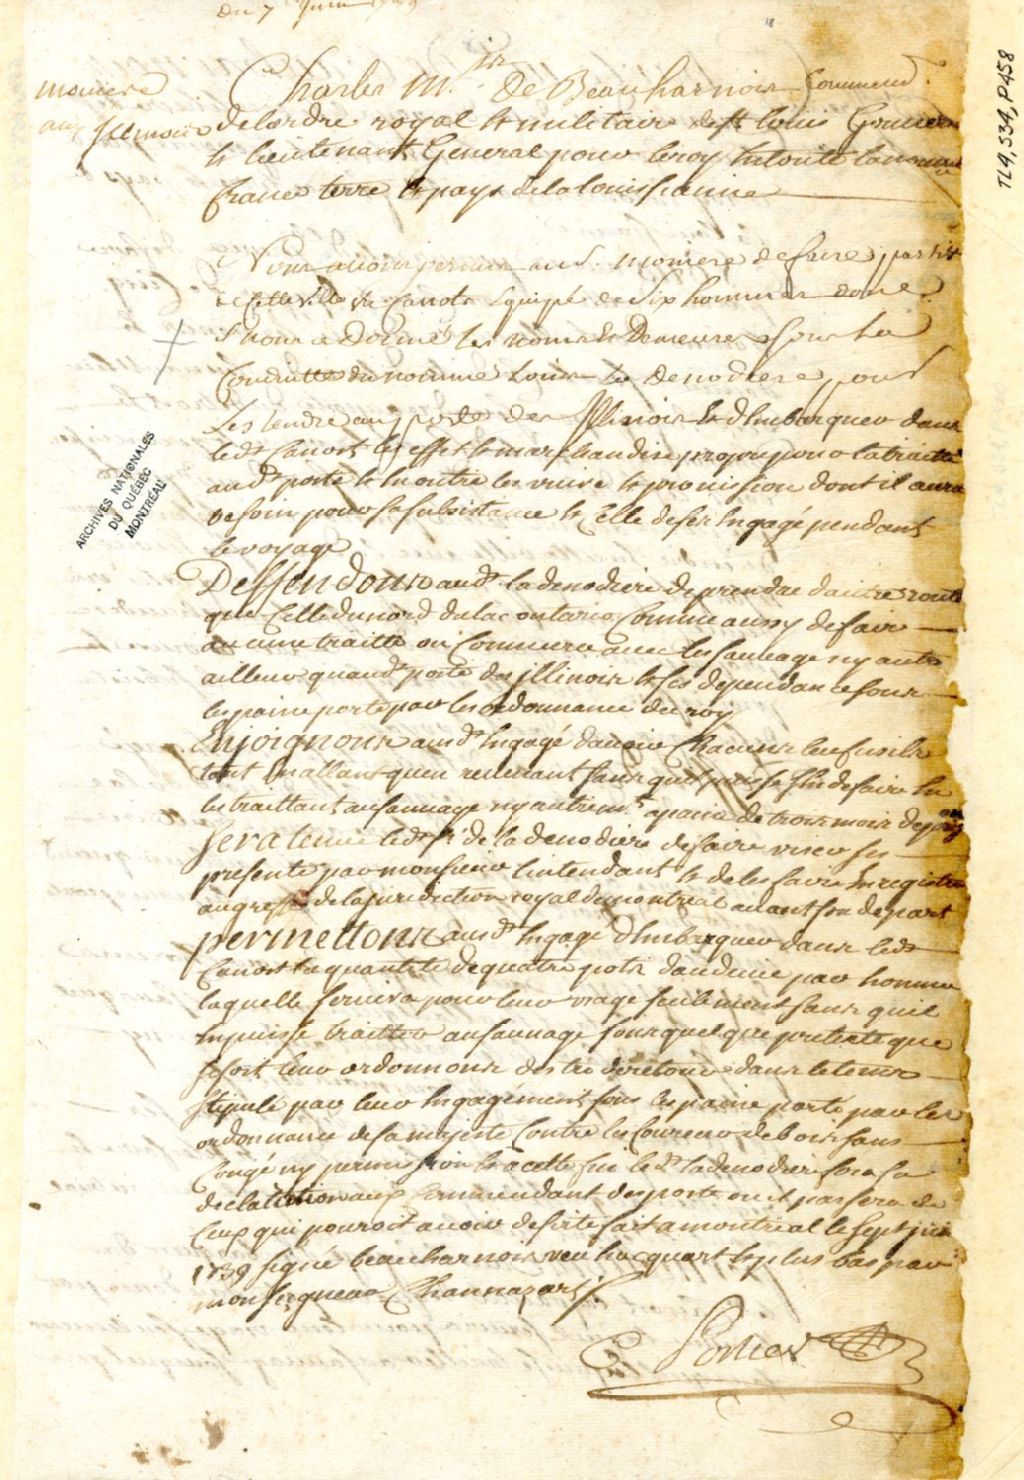 du 7 Juin 1739
18
TL4, S34, P458
moniere
aux Illinois
Charles M.is De Beauharnois Command.r
de lordre royal & militaire de St louis Gouver
& lieutenant General pour leroy En toute lanouvelle
france terre & pays dela louissianne
Nous avons permis au S. moniere de faire partir
de Cette ville un Canots Equipé de Six hommes dont
Il nous a Donné les noms & Demeure Sous La
Conduitte du nommé Louis La Denodiere pour
Se rendre au poste des Illinois & d'Embarquer dans
led.t Canots les effets & marchandise propre pour la traitte
aud.t poste & En outre les vivre & provission dont il aura
besoin pour sa subsistance & Celle de ses Engagé pendant
le voyage
Deffendons aud.t la denodiere de prendre dautre route
que Celle du nord du lac ontario Comme aussy de faire
aucune traitte ou Commerce avec les sauvage ny autre
ailleur quaud.t poste des illinois & ses dependance sous
les paine porté par les ordonnance du roy
Enjoignons ausd.t Engagé davoir Chacuns leur fusils
tant En allant quen revenant sans quil puisse sEn defaire En
les traittant au sauvage ny autrem.t a paine de trois mois de prison
Sera tenue led.t Sr de la denodiere de faire viser ses
presente par monsieur lintendant & de les faire Enregistrer
au greffe de la juridiction royal de montreal avant son depart
permettons ausd.t Engagé d'Embarquer dans led.t
Canost la quantité de quatre pots deaudevie par homme
laquelle servira pour leur usage seullement sans quil
En puisse traitter au sauvage sous quelque pretexte que
se soit leur ordonnons destre de retour dans le tems
stipulé par leur Engagement sous les paine porté par les
ordonnance de sa majesté Contre les Coureur de bois sans
Congé ny permission & a cette fin led.t la denodiere fera sa
declaration aux Commendant des poste ou il passera de
Ceux qui pouroit avoir deserté fait a montreal le sept juin
1739 signé beauharnois veu hocquart & plus bas par
monseigneur Channazart
Porlier
ARCHIVES NATIONALES
DU QUÉBEC
MONTRÉAL